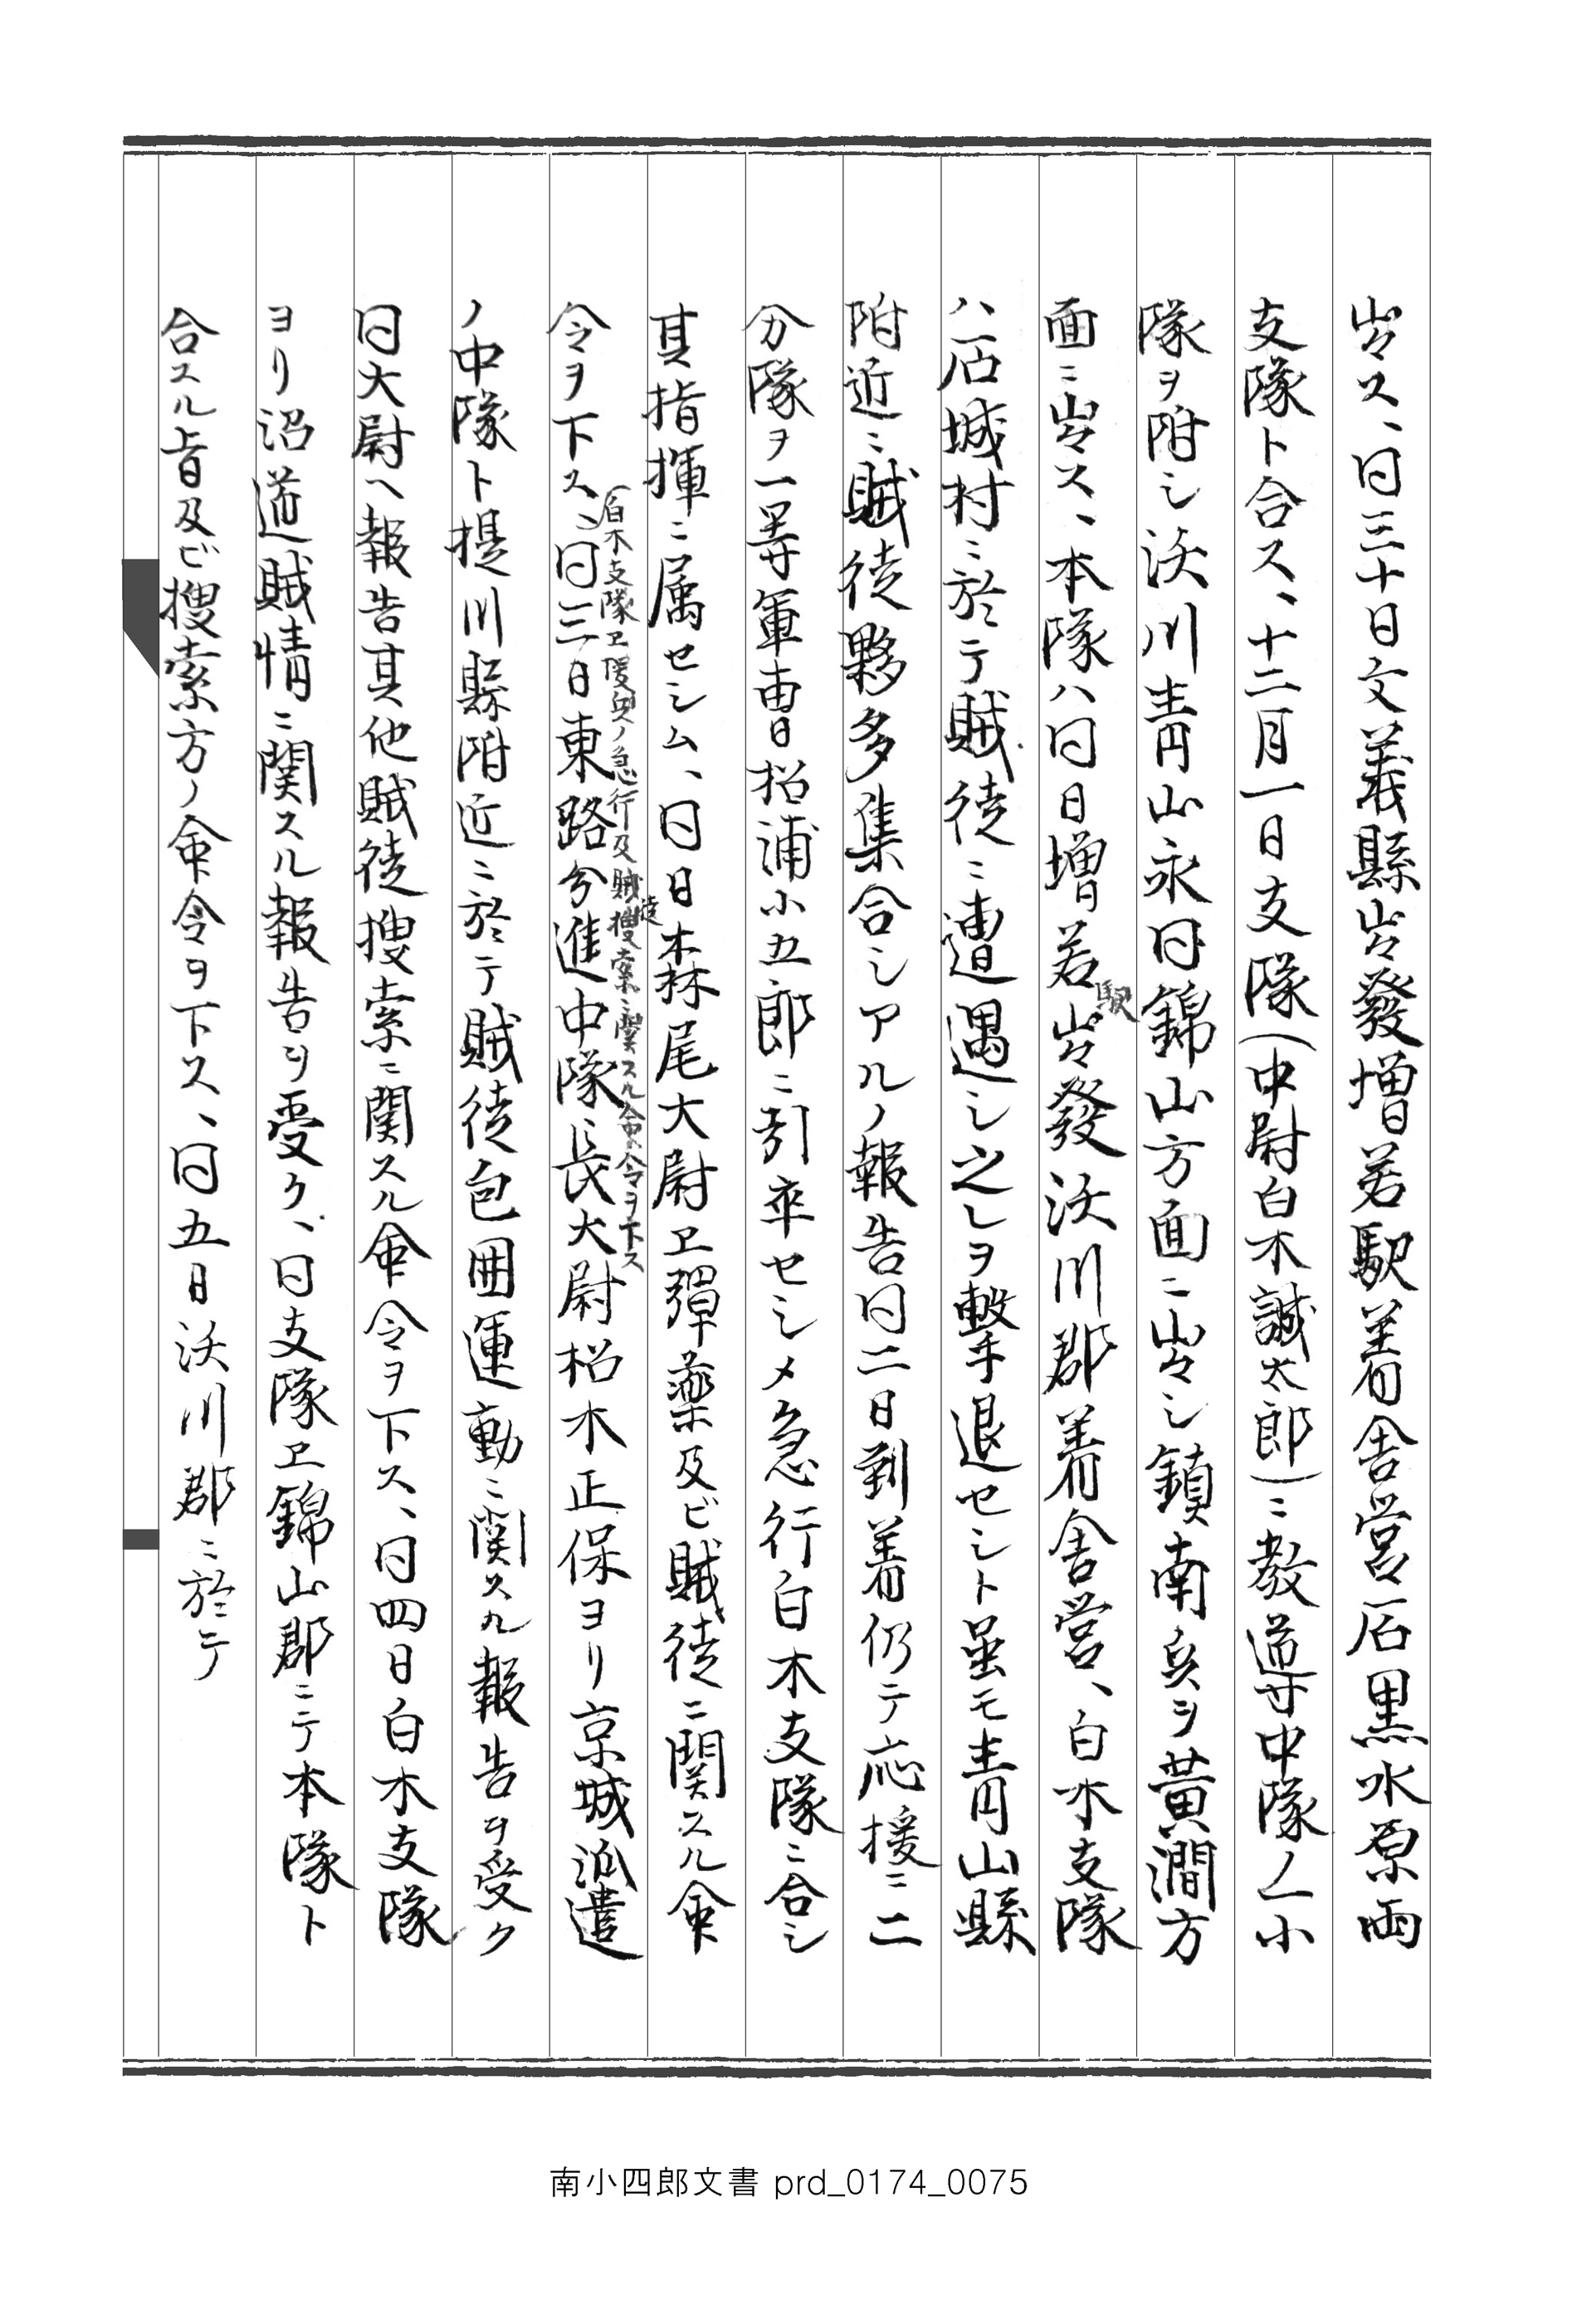 出ス、同三十日文義縣出發增若駅着舎営石黒水原両
支隊ト合ス、十二月一日支隊(中尉白木誠太郎)ニ教導中隊ノ一小
隊ヲ附シ沃川青山永同錦山方面ニ出シ鎮南兵ヲ黄澗方
面ニ出ス、本隊ハ同日増若駅出發沃川郡着舎営、白木支隊
ハ石城村ニ於テ賊徒ニ遭遇シ之レヲ撃退セシト虽モ青山縣
附近ニ賊徒夥多集合シアルノ報告同二日到着仍テ応援ニ二
分隊ヲ一等軍曹松浦小五郎ニ引率セシメ急行白木支隊ニ合シ
其指揮ニ属セシム、同日森尾大尉ヱ弾薬及ビ賊徒ニ関スル命
白木支隊ヱ援兵ノ急行及賊徒搜索ニ関スル命令ヲ下ス
令ヲ下ス、同三日東路分進中隊長大尉松木正保ヨリ京城派遣
ノ中隊ト提川縣附近ニ於テ賊徒包囲運動ニ関スル報告ヲ受ク
同大尉ヘ報告其他賊徒搜索ニ関スル命令ヲ下ス、同四日白木支隊
ヨリ沿道賊情ニ関スル報告ヲ受ク、同支隊ヱ錦山郡ニテ本隊ト
合スル旨及ビ搜索方ノ命令ヲ下ス、同五日沃川郡ニ於テ
南小四郎文書 prd_0174_0075